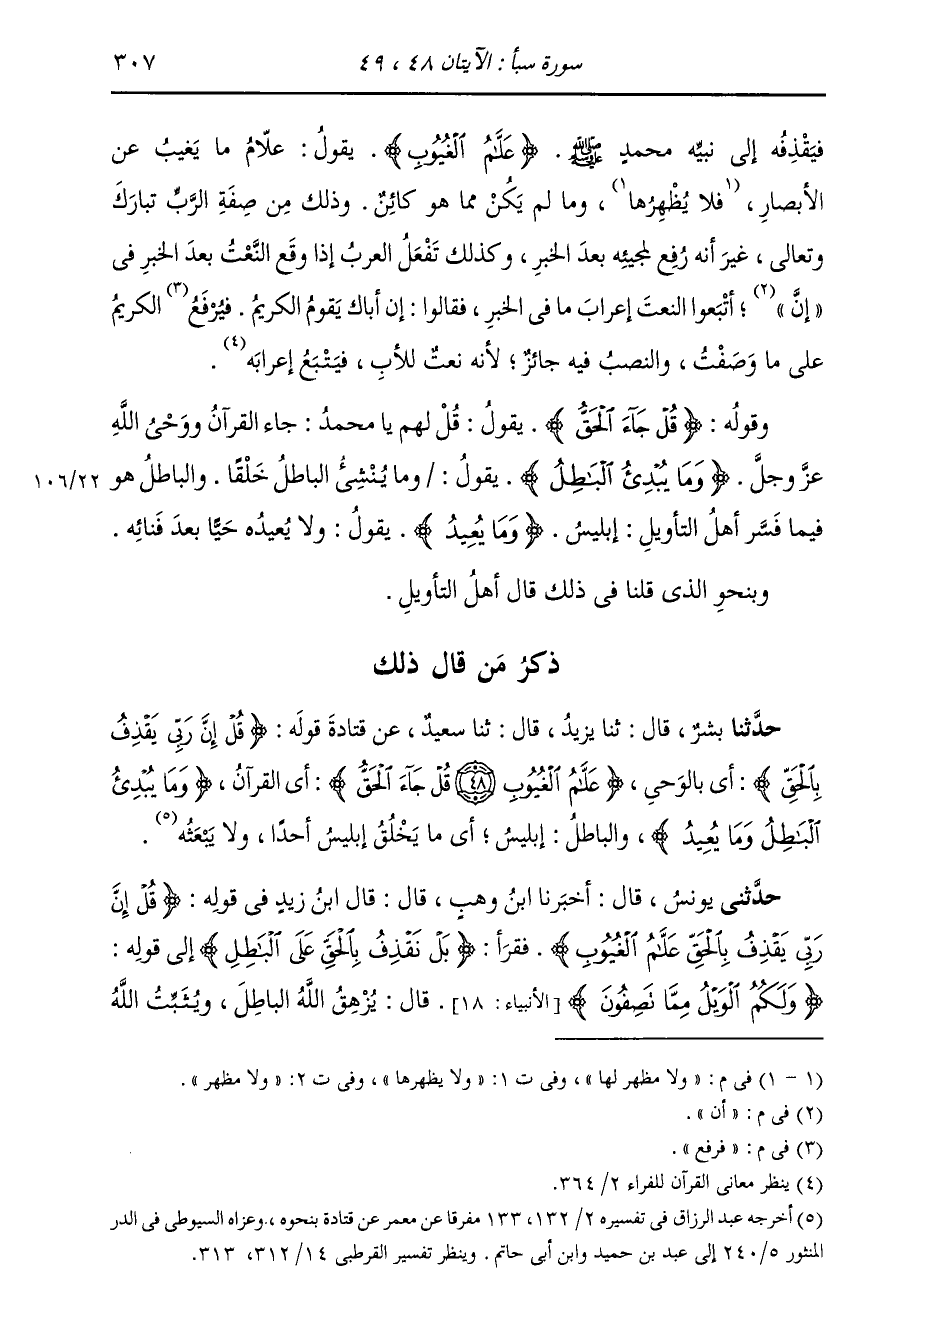 سورة سبأ : الآيتان ٤٨ ، ٤٩ ٣٠٧
فيَقْذِفُه إلى نبيِّه محمدٍ ﷺ . ﴿ عَلَّٰمُ ٱلْغُيُوبِ ﴾ . يقولُ : علّامُ ما يَغيبُ عن
الأبصارِ ، (١فلا يُظْهِرُها١) ، وما لم يَكُنْ مما هو كائِنٌ . وذلك مِن صِفَةِ الرَّبِّ تبارَكَ
وتعالى ، غيرَ أنه رُفِع لمجيئِه بعدَ الخبرِ ، وكذلك تَفْعَلُ العربُ إذا وقَع النَّعْتُ بعدَ الخبرِ فى
« إنَّ »(٢) ؛ أتْبَعوا النعتَ إعرابَ ما فى الخبرِ ، فقالوا : إن أباك يَقومُ الكريمُ . فيُرْفَعُ(٣) الكريمُ
على ما وَصَفْتُ ، والنصبُ فيه جائزٌ ؛ لأنه نعتٌ للأبِ ، فيَتْبَعُ إعرابَه(٤) .
وقولُه : ﴿ قُلْ جَآءَ ٱلْحَقُّ ﴾ . يقولُ : قُلْ لهم يا محمدُ : جاء القرآنُ ووَحْىُ اللَّهِ
عزَّ وجلَّ . ﴿ وَمَا يُبْدِئُ ٱلْبَٰطِلُ ﴾ . يقولُ : / وما يُنْشِئُ الباطلُ خَلْقًا . والباطلُ هو ١٠٦/٢٢
فيما فَسَّر أهلُ التأويلِ : إبليسُ . ﴿ وَمَا يُعِيدُ ﴾ . يقولُ : ولا يُعيدُه حَيًّا بعدَ فَنائِه .
وبنحوِ الذى قلنا فى ذلك قال أهلُ التأويلِ .
ذكرُ مَن قال ذلك
حدَّثنا بشرٌ ، قال : ثنا يزيدُ ، قال : ثنا سعيدٌ ، عن قتادةَ قولَه : ﴿ قُلْ إِنَّ رَبِّى يَقْذِفُ
بِٱلْحَقِّ ﴾ : أى بالوَحيِ ، ﴿ عَلَّٰمُ ٱلْغُيُوبِ ٤٨ قُلْ جَآءَ ٱلْحَقُّ ﴾ : أى القرآنُ ، ﴿ وَمَا يُبْدِئُ
ٱلْبَٰطِلُ وَمَا يُعِيدُ ﴾ ، والباطلُ : إبليسُ ؛ أى ما يَخْلُقُ إبليسُ أحدًا ، ولا يَبْعَثُه(٥) .
حدَّثنى يونسُ ، قال : أخبَرنا ابنُ وهبٍ ، قال : قال ابنُ زيدٍ فى قولِه : ﴿ قُلْ إِنَّ
رَبِّى يَقْذِفُ بِٱلْحَقِّ عَلَّٰمُ ٱلْغُيُوبِ ﴾ . فقرَأ : ﴿ بَلْ نَقْذِفُ بِٱلْحَقِّ عَلَى ٱلْبَٰطِلِ ﴾ إلى قولِه :
﴿ وَلَكُمُ ٱلْوَيْلُ مِمَّا نَصِفُونَ ﴾ [الأنبياء : ١٨] . قال : يُزْهِقُ اللَّهُ الباطلَ ، ويُثَبِّتُ اللَّهُ
(١ - ١) فى م : « ولا مظهر لها » ، وفى ت ١ : « ولا يظهرها » ، وفى ت ٢ : « ولا مظهر » .
(٢) فى م : « أن » .
(٣) فى م : « فرفع » .
(٤) ينظر معانى القرآن للفراء ٢/ ٣٦٤ .
(٥) أخرجه عبد الرزاق فى تفسيره ٢/ ١٣٢، ١٣٣ مفرقا عن معمر عن قتادة بنحوه ، وعزاه السيوطى فى الدر
المنثور ٥/ ٢٤٠ إلى عبد بن حميد وابن أبى حاتم . وينظر تفسير القرطبى ١٤/ ٣١٢، ٣١٣ .